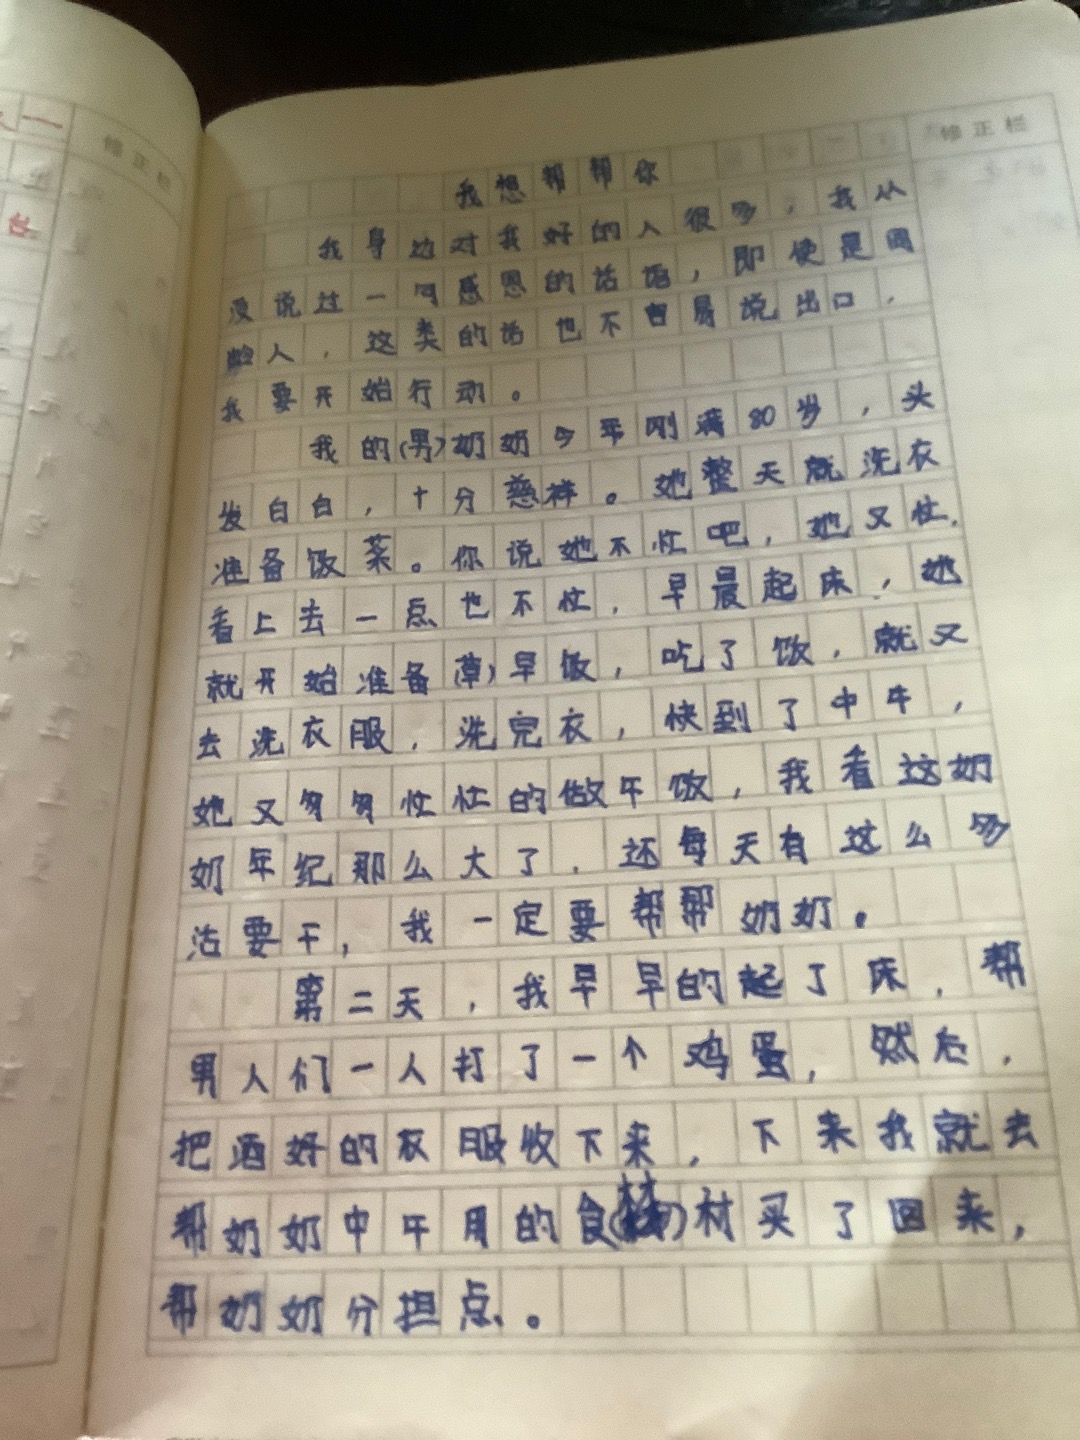 修正栏
修正栏
我想帮帮你
我身边对我好的人很多，我从
没说过一句感恩的话语，即使是同
龄人，这类的话也不容易说出口，
我要开始行动。
我的(男)奶奶今年刚满80岁，头
发白白，十分慈祥。她整天就洗衣
准备饭菜。你说她不忙吧，她又忙，
看上去一点也不忙，早晨起床，她
就开始准备(草)早饭，吃了饭，就又
去洗衣服，洗完衣，快到了中午，
她又匆匆忙忙的做午饭，我看这奶
奶年纪那么大了，还每天有这么多
活要干，我一定要帮帮奶奶。
第二天，我早早的起了床，帮
男人们一人打了一个鸡蛋，然后，
把洒好的衣服收下来，下来我就去
帮奶奶中午用的食()材买了回来，
帮奶奶分担点。